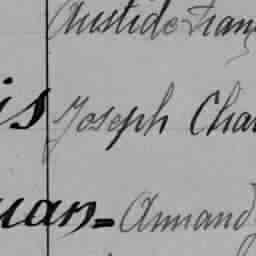 Aristide Fran
is Joseph Char
uan= Armand